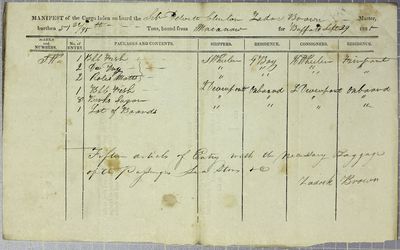 MANIFEST of the Cargo laden on board the Schr Dewit Clinton Zadoc Brown Master,
burthen Tons, bound from Mackinaw for Buffalo Sept 29
MARKS and NUMBERS. No. of ENTRY. PACKAGES AND CONTENTS. SHIPPERS. RESIDENCE. CONSIGNEES. RESIDENCE.
1 Bbl Fish J Wheeler G Bay Fairport
2 " " " "
2 Rolls Matts " " " "
1 Bbl Fish L Davenport on board L Davenport on board
8 Sugar " " " "
1 Lot of Boards " "
Fifteen articles of Entry with the necessary Baggage
of the Passengers Sea Stores &c
Zadock Brown